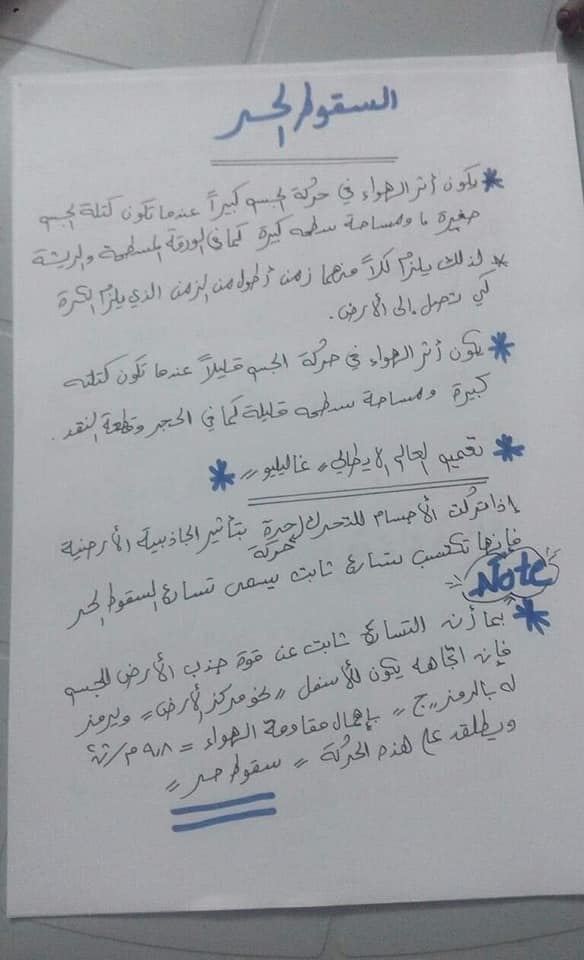 السقوط الحر
* يكون أثر الهواء في حركة الجسم كبيراً عندما تكون كتلة الجسم
صغيرة ، ومساحة سطحه كبيرة كما في الورقة المسطحة والريشة
* لذلك يلزم كلاً منهما زمن أطول من الزمن الذي يلزم الكرة
كي تصل إلى الأرض.
* يكون أثر الهواء في حركة الجسم قليلاً عندما تكون كتلته
كبيرة ومساحة سطحه قليلة كما في الحجر وقطعة النقد .
* تعميم العالم الإيطالي " غاليليو " *
إذا تركت الأجسام للتحرك حركة حرة بتأثير الجاذبية الأرضية
فإنها تكتسب تسارع ثابت يسمى تسارع السقوط الحر
Note
* بما أن التسارع ثابت عن قوة جذب الأرض للجسم
فإنه اتجاهه يكون للأسفل " نحو مركز الأرض " ويرمز
له بالرمز " ج " بإهمال مقاومة الهواء = ٩,٨ م/ث٢
ويطلق على هذه الحركة " سقوط حر "